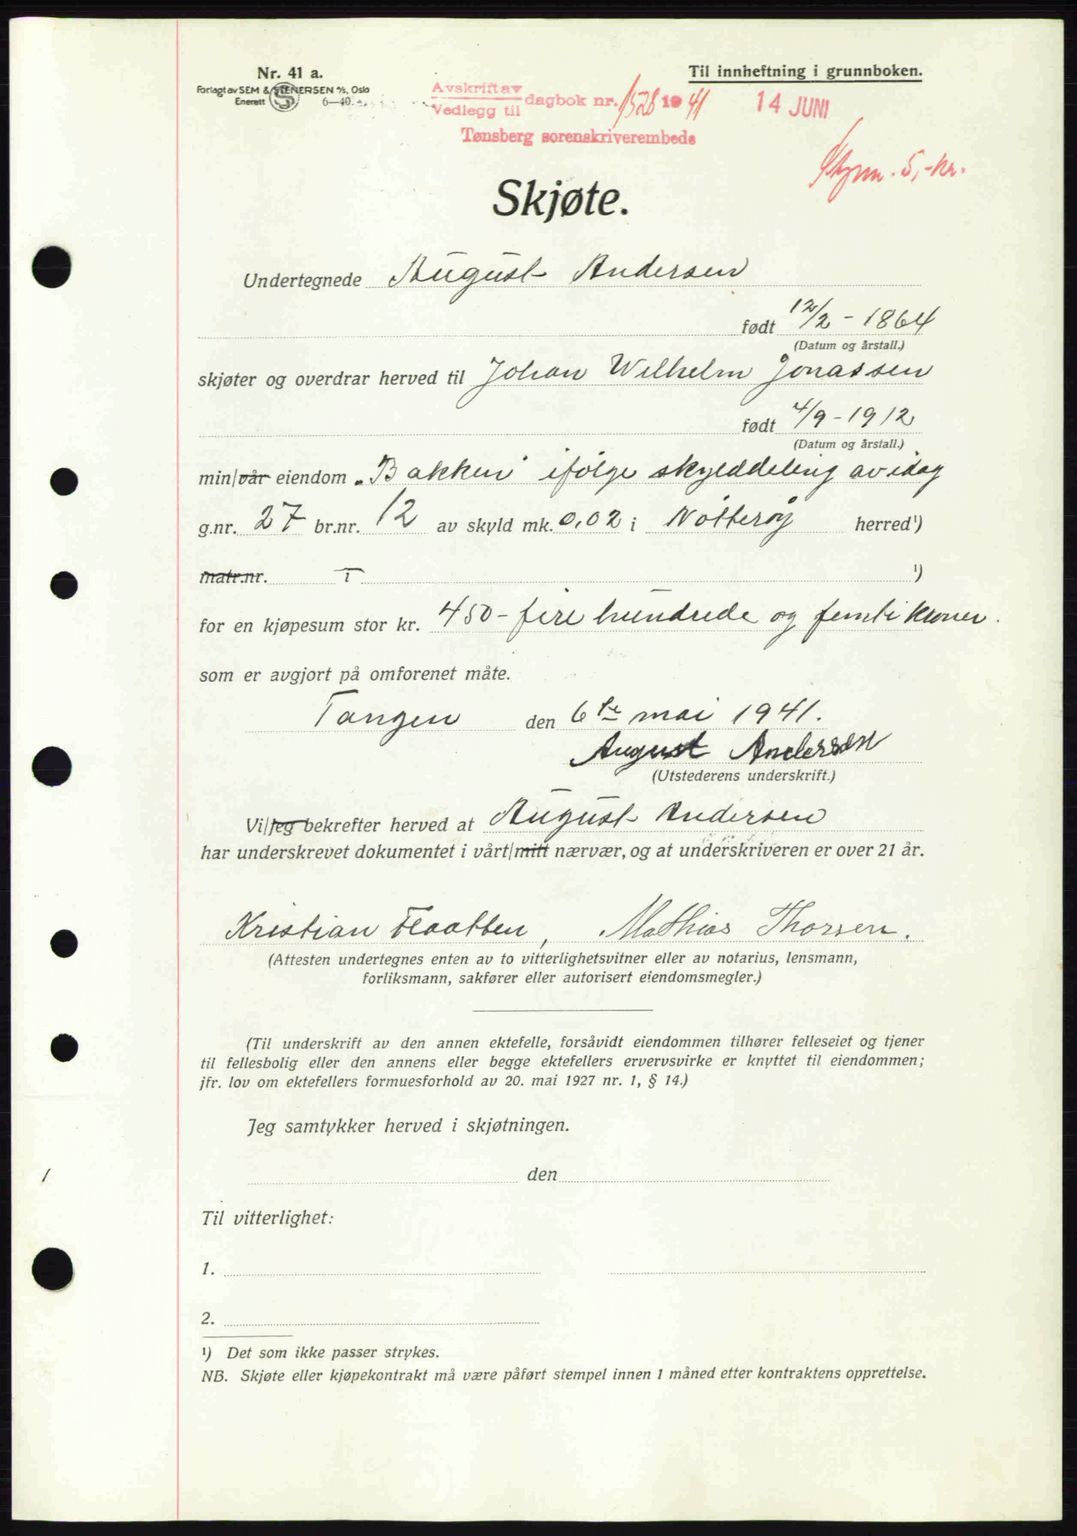 Nr. 41 a.
Forlagt av SEM & STENERSEN A/S, Oslo
Enerett 6—40.
Til innheftning i grunnboken.
Avskrift av
Vedlegg til
dagbok nr. 1528 1941
14 JUNI
Tønsberg sorenskriverembede
5,- kr.
Skjøte.
Undertegnede August Andersen
født 12/2 - 1864
(Datum og årstall.)
skjøter og overdrar herved til Johan Wilhelm Jonassen
født 4/9 - 1912
(Datum og årstall.)
min/vår eiendom „Bakken" ifølge skylddeling av idag
g.nr. 27 br.nr. 12 av skyld mk. 0,02 i Nøtterøy herred¹)
matr.nr. i ¹)
for en kjøpesum stor kr. 450 - fire hundrede og femti kroner.
som er avgjort på omforenet måte.
Tangen den 6te mai 1941.
August Andersen
(Utstederens underskrift.)
Vi/jeg bekrefter herved at August Andersen
har underskrevet dokumentet i vårt/mitt nærvær, og at underskriveren er over 21 år.
Kristian Flaatten, Mathias Thorsen.
(Attesten undertegnes enten av to vitterlighetsvitner eller av notarius, lensmann,
forliksmann, sakfører eller autorisert eiendomsmegler.)
(Til underskrift av den annen ektefelle, forsåvidt eiendommen tilhører felleseiet og tjener
til fellesbolig eller den annens eller begge ektefellers ervervsvirke er knyttet til eiendommen;
jfr. lov om ektefellers formuesforhold av 20. mai 1927 nr. 1, § 14.)
Jeg samtykker herved i skjøtningen.
den
Til vitterlighet:
1.
2.
¹) Det som ikke passer strykes.
NB. Skjøte eller kjøpekontrakt må være påført stempel innen 1 måned etter kontraktens opprettelse.